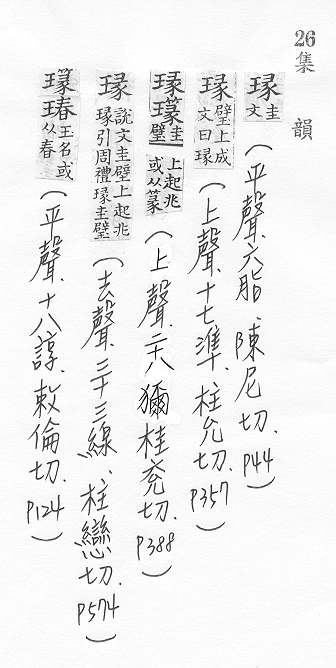 26 集韻
瑑 圭文(平聲.六脂.陳尼切.P44)
瑑 璧上成文曰瑑(上聲.十七準.柱允切.P357)
瑑 圭璧上起兆或从篆(上聲.二十八獮柱兗切.P388)
瑑 說文圭璧上起兆瑑引周禮瑑圭璧(去聲.三十三線、柱戀切.P574)
瑃 玉名或从春(平聲.十八諄.敕倫切.P124)